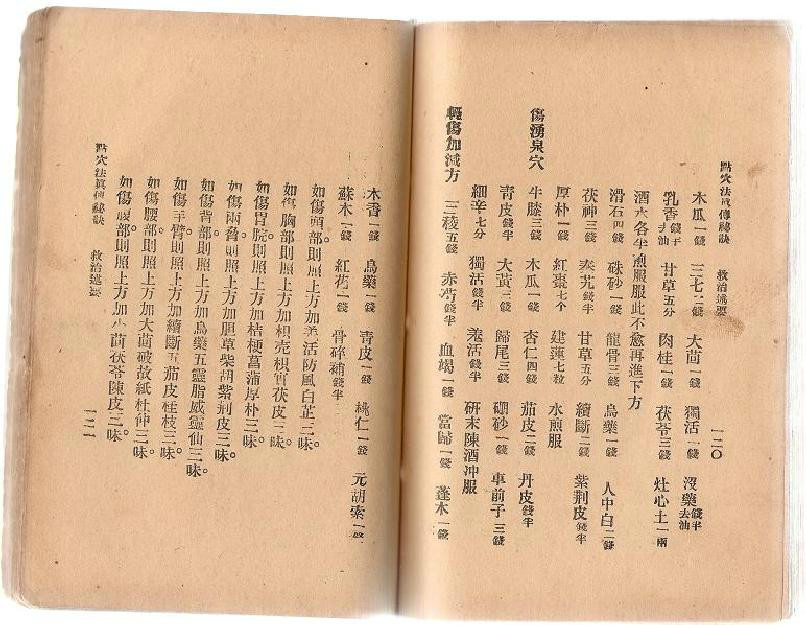 點穴法真傳秘訣 救治述要 一二〇
木瓜一錢 三七二錢 大茴一錢 獨活一錢 沒藥錢半去油
乳香錢半去油 甘草五分 肉桂一錢 茯苓三錢 灶心土一兩
酒水各半煎服服此不愈再進下方
滑石四錢 硃砂一錢 龍骨三錢 烏藥一錢 人中白二錢
茯神三錢 秦艽錢半 甘草五分 續斷二錢 紫荆皮錢半
厚朴一錢 紅棗七个 建蓮七粒 水煎服
傷湧泉穴 牛膝三錢 木瓜一錢 杏仁四錢 茄皮二錢 丹皮錢半
青皮錢半 大黃三錢 歸尾三錢 硼砂一錢 車前子三錢
細辛七分 獨活錢半 羗活錢半 研末陳酒冲服
輕傷加減方 三稜五錢 赤芍錢半 血竭一錢 當歸一錢 蓬木一錢
木香一錢 烏藥一錢 青皮一錢 桃仁一錢 元胡索一錢
蘇木一錢 紅花一錢 骨碎補錢半
如傷頭部則照上方加羗活防風白芷三味。
如傷胸部則照上方加枳壳枳實茯皮三味。
如傷胃脘則照上方加桔梗菖蒲厚朴三味。
如傷兩脅則照上方加胆草柴胡紫荆皮三味。
如傷背部則照上方加烏藥五靈脂威靈仙三味。
如傷手臂則照上方加續斷五茄皮桂枝三味。
如傷腰部則照上方加大茴破故紙杜仲三味。
如傷腹部則照上方加小茴茯苓陳皮三味
點穴法真傳秘訣 救治述要 一二一